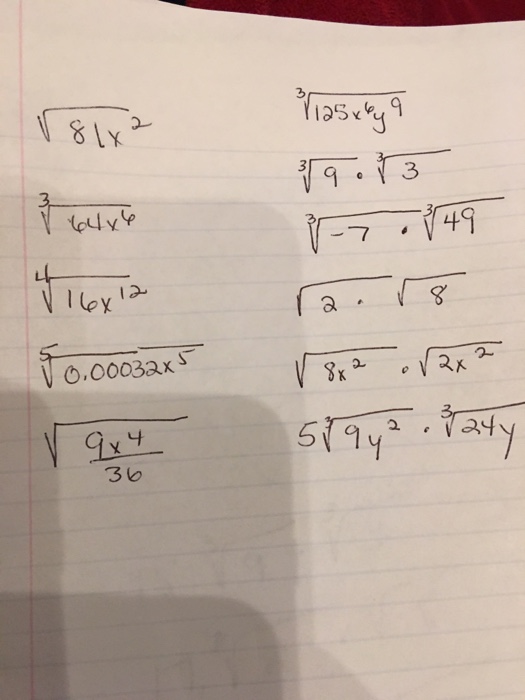 √81x²
∛64x⁶
∜16x¹²
⁵√0.00032x⁵
√(9x⁴/36)
∛125x⁶y⁹
∛9 · ∛3
∛-7 · ∛49
√2 · √8
√8x² · √2x²
5∛9y² · ∛24y